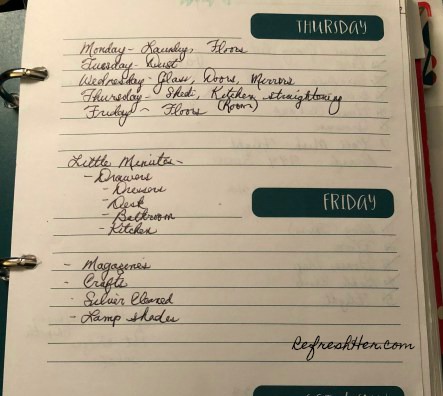 THURSDAY
Monday - Laundry, Floors
Tuesday - Dust
Wednesday - Glass, Doors, Mirrors
Thursday - Shed, Kitchen, straightening
Friday - Floors (Room)
Little Minutes -
- Drawers
- Dressers
- Desk
- Bathroom
- Kitchen
FRIDAY
- Magazines
- Crafts
- Silver Cleaned
- Lamp shades
RefreshHer.com